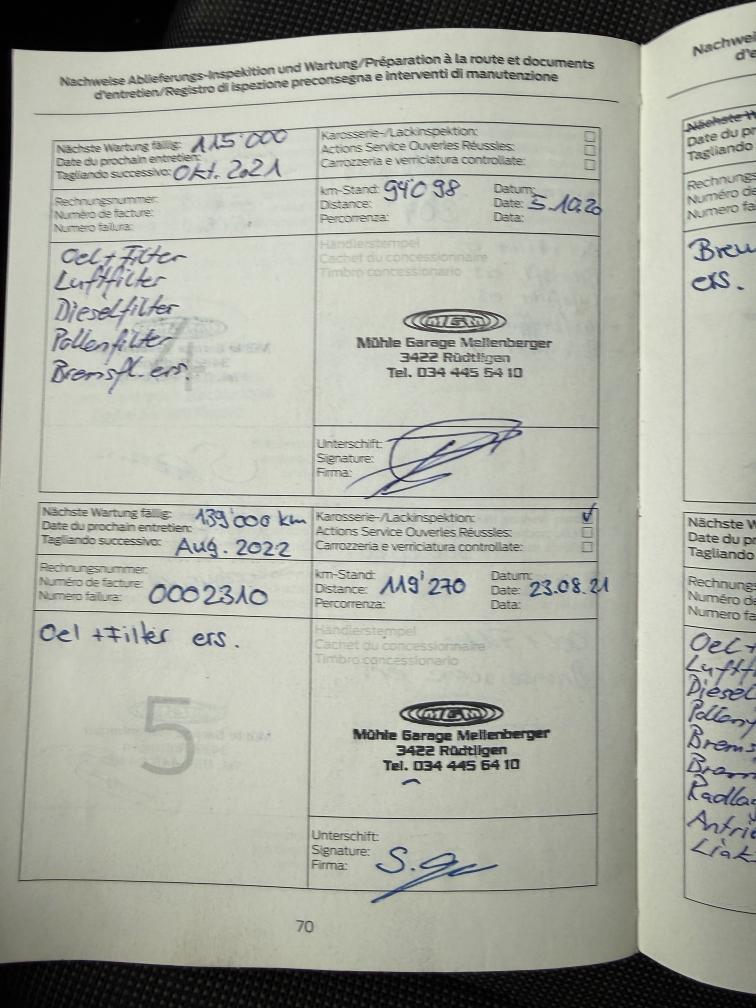 Nachweise Ablieferungs-Inspekition und Wartung/Préparation à la route et documents
d'entretien/Registro di ispezione preconsegna e interventi di manutenzione
Nächste Wartung fällig: 115'000
Date du prochain entretien:
Tagliando successivo: Okt. 2021
Karosserie-/Lackinspektion:
Actions Service Ouverles Réussles:
Carrozzeria e verriciatura controllate:
Rechnungsnummer:
Numéro de facture:
Numero failura:
km-Stand: 94'098
Distance:
Percorrenza:
Datum:
Date: 5.10.20
Data:
Oel + Filter
Luftfilter
Dieselfilter
Pollenfilter
Bremsfl. ers.
4
Händlerstempel
Cachet du concessionnaire
Timbro concessionario
MGM
Mühle Garage Mellenberger
3422 Rüdtligen
Tel. 034 445 64 10
Unterschift:
Signature:
Firma:
Nächste Wartung fällig: 139'000 km
Date du prochain entretien:
Tagliando successivo: Aug. 2022
Karosserie-/Lackinspektion: ✓
Actions Service Ouverles Réussles:
Carrozzeria e verriciatura controllate:
Rechnungsnummer:
Numéro de facture:
Numero failura: 0002310
km-Stand:
Distance: 119'270
Percorrenza:
Datum:
Date: 23.08.21
Data:
Oel + Filter ers.
5
Händlerstempel
Cachet du concessionnaire
Timbro concessionario
MGM
Mühle Garage Mellenberger
3422 Rüdtligen
Tel. 034 445 64 10
Unterschift:
Signature:
Firma:
70
Nachwei
d'e
Nächste W
Date du pr
Tagliando
Rechnungs
Numéro de
Numero fa
Brem
ers.
Nächste W
Date du pr
Tagliando
Rechnung
Numéro de
Numero fa
Oel +
Luftf
Diesel
Pollenf
Brems
Brem
Radla
Antrie